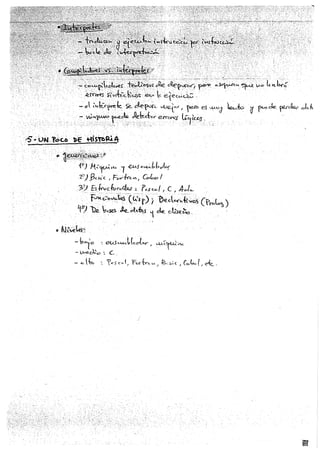 • Intérpretes
- traducen y ejecutan instrucción por instrucción
- bucle de interpretación
• Compiladores vs. intérpretes
- compiladores: tediosos de depurar, pero aseguran que no habrá
errores sintácticos en la ejecución
- el intérprete se depura mejor, pero es muy lento y puede
- ninguno puede detectar errores lógicos.
5- UN POCO DE HISTORIA
• Generaciones:
1ª) Máquina y ensamblador
2ª) Basic, Fortran, Cobol
3ª) Estructurados: Pascal, C, Ada
Funcionales (Lisp); Declarativos (Prolog)
4ª) De bases de datos y de diseño.
• Niveles:
- bajo: ensamblador, máquina
- medio: C.
- alto: Pascal, Fortran, Basic, Cobol, etc.